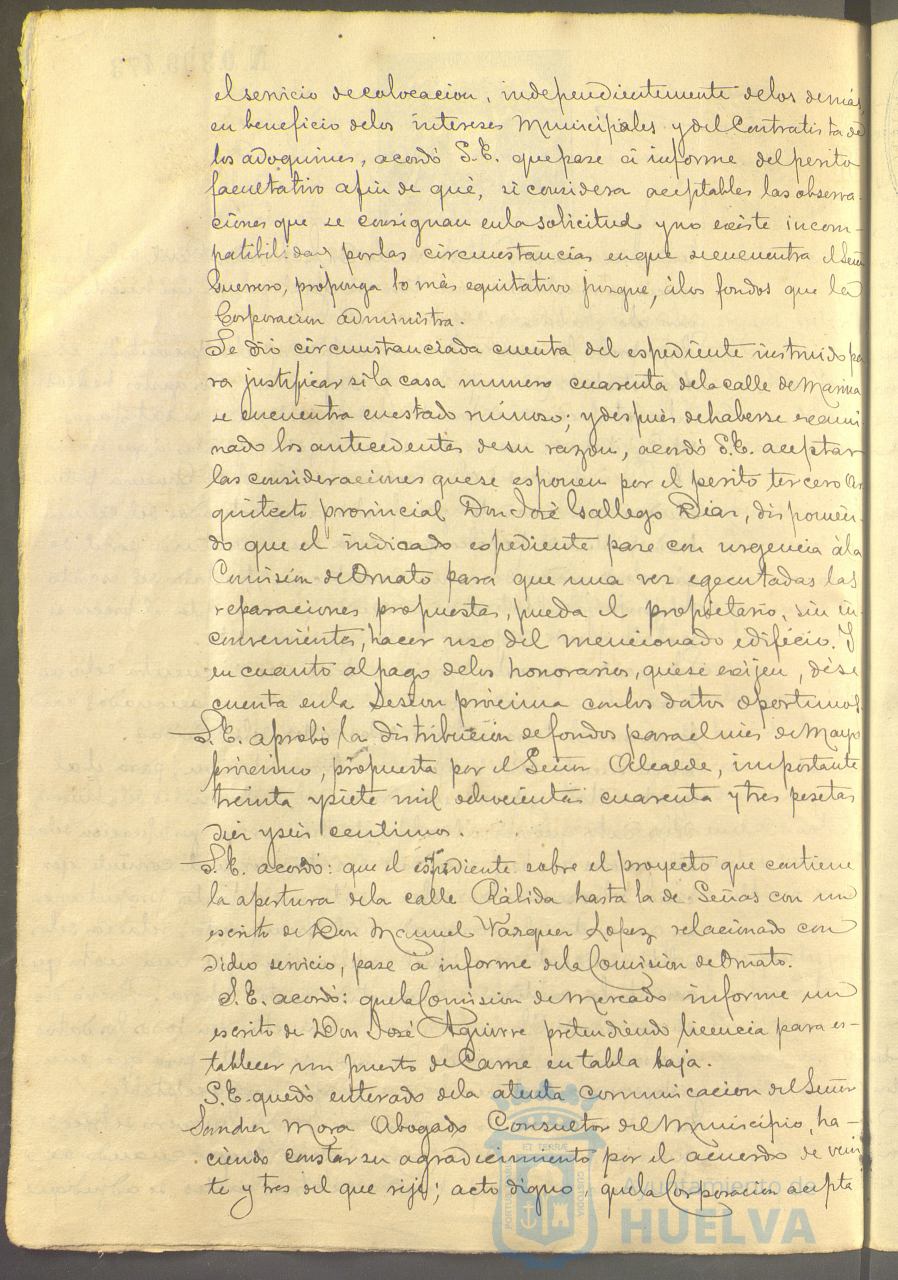 el servicio de colocacion, independientemente de los demás,
en beneficio de los intereses Municipales y del Contratista de
los adoquines, acordó S.E. que pase á informe del perito
facultativo afin de que, si considera aceptables las observa-
ciones que se consignan en la solicitud y no existe incom-
patibilidad por las circunstancias en que se encuentra el Señor
Guerrero, proponga lo más equitativo juzgue, á los fondos que la
Corporacion administra.
Se dió circunstanciada cuenta del espediente instruido pa
ra justificar si la casa numero cuarenta de la calle de Marina
se encuentra en estado ruinoso; y despues de haberse exami-
nado los antecedentes de su razon, acordó S.E. aceptar
las consideraciones que se esponen por el perito tercero Ar
quitecto provincial Don José Gallego Diaz, disponien-
do que el indicado espediente pase con urgencia á la
Comision de Ornato para que una vez egecutadas las
reparaciones propuestas, pueda el propietario, sin in-
convenientes, hacer uso del mencionado edificio. Y
en cuanto al pago de los honorarios, que se exijen, dése
cuenta en la Sesion próxima con los datos oportunos.
S.E. aprobó la distribución de fondos para el mes de Mayo
próximo, propuesta por el Señor Alcalde, importante
treinta y siete mil ochocientas cuarenta y tres pesetas
diez y seis centimos.
S.E. acordó: que el espediente sobre el proyecto que contiene
la apertura de la calle Rábida hasta la de Señas con un
escrito de Don Manuel Vazquez Lopez relacionado con
dicho servicio, pase á informe de la Comisión de Ornato.
S.E. acordó: que la Comision de Mercado informe un
escrito de Don José Aguirre pretendiendo licencia para es-
tablecer un puesto de Carne en tabla baja.
S.E. quedó enterado de la atenta comunicacion del Señor
Sanchez Mora Abogado Consultor del Municipio, ha-
ciendo constar su agradecimiento por el acuerdo de vein
te y tres del que rije; acto digno, que la Corporacion acepta
Ayuntamiento de
HUELVA